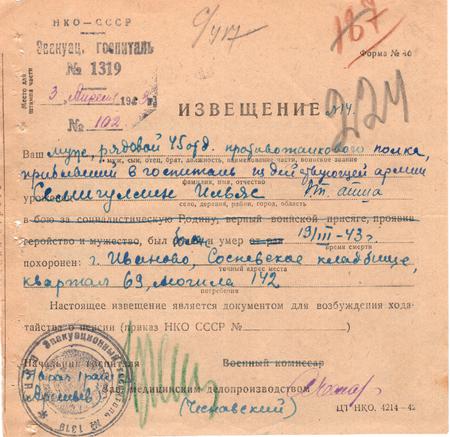 НКО—СССР
Эвакуац. госпиталь
№ 1319
3 Апреля 1943 г.
№ 102
Место для
штампа части
С/417
187
Форма № 40
224
ИЗВЕЩЕНИЕ
Ваш муж, рядовой 45 отд. противотанкового полка,
муж, сын, отец, брат, должность, наименование части, воинское звание
прибывший в госпиталь из действующей армии
фамилия, имя, отчество
Ильяс
село, деревня, район, город, область
в бою за социалистическую Родину, верный воинской присяге, проявив
геройство и мужество, был болен и умер 19/III-43 г.
время смерти
похоронен: г. Иваново, Сосневское кладбище,
точный адрес места
квартал 69, могила 142
погребения
Настоящее извещение является документом для возбуждения хода-
тайства о пенсии (приказ НКО СССР №
Начальник госпиталя
Военный комиссар
Зав медицинским делопроизводством
(Чеснавский)
Эвакуационный госпиталь № 1319
ЦТ НКО. 4214—42